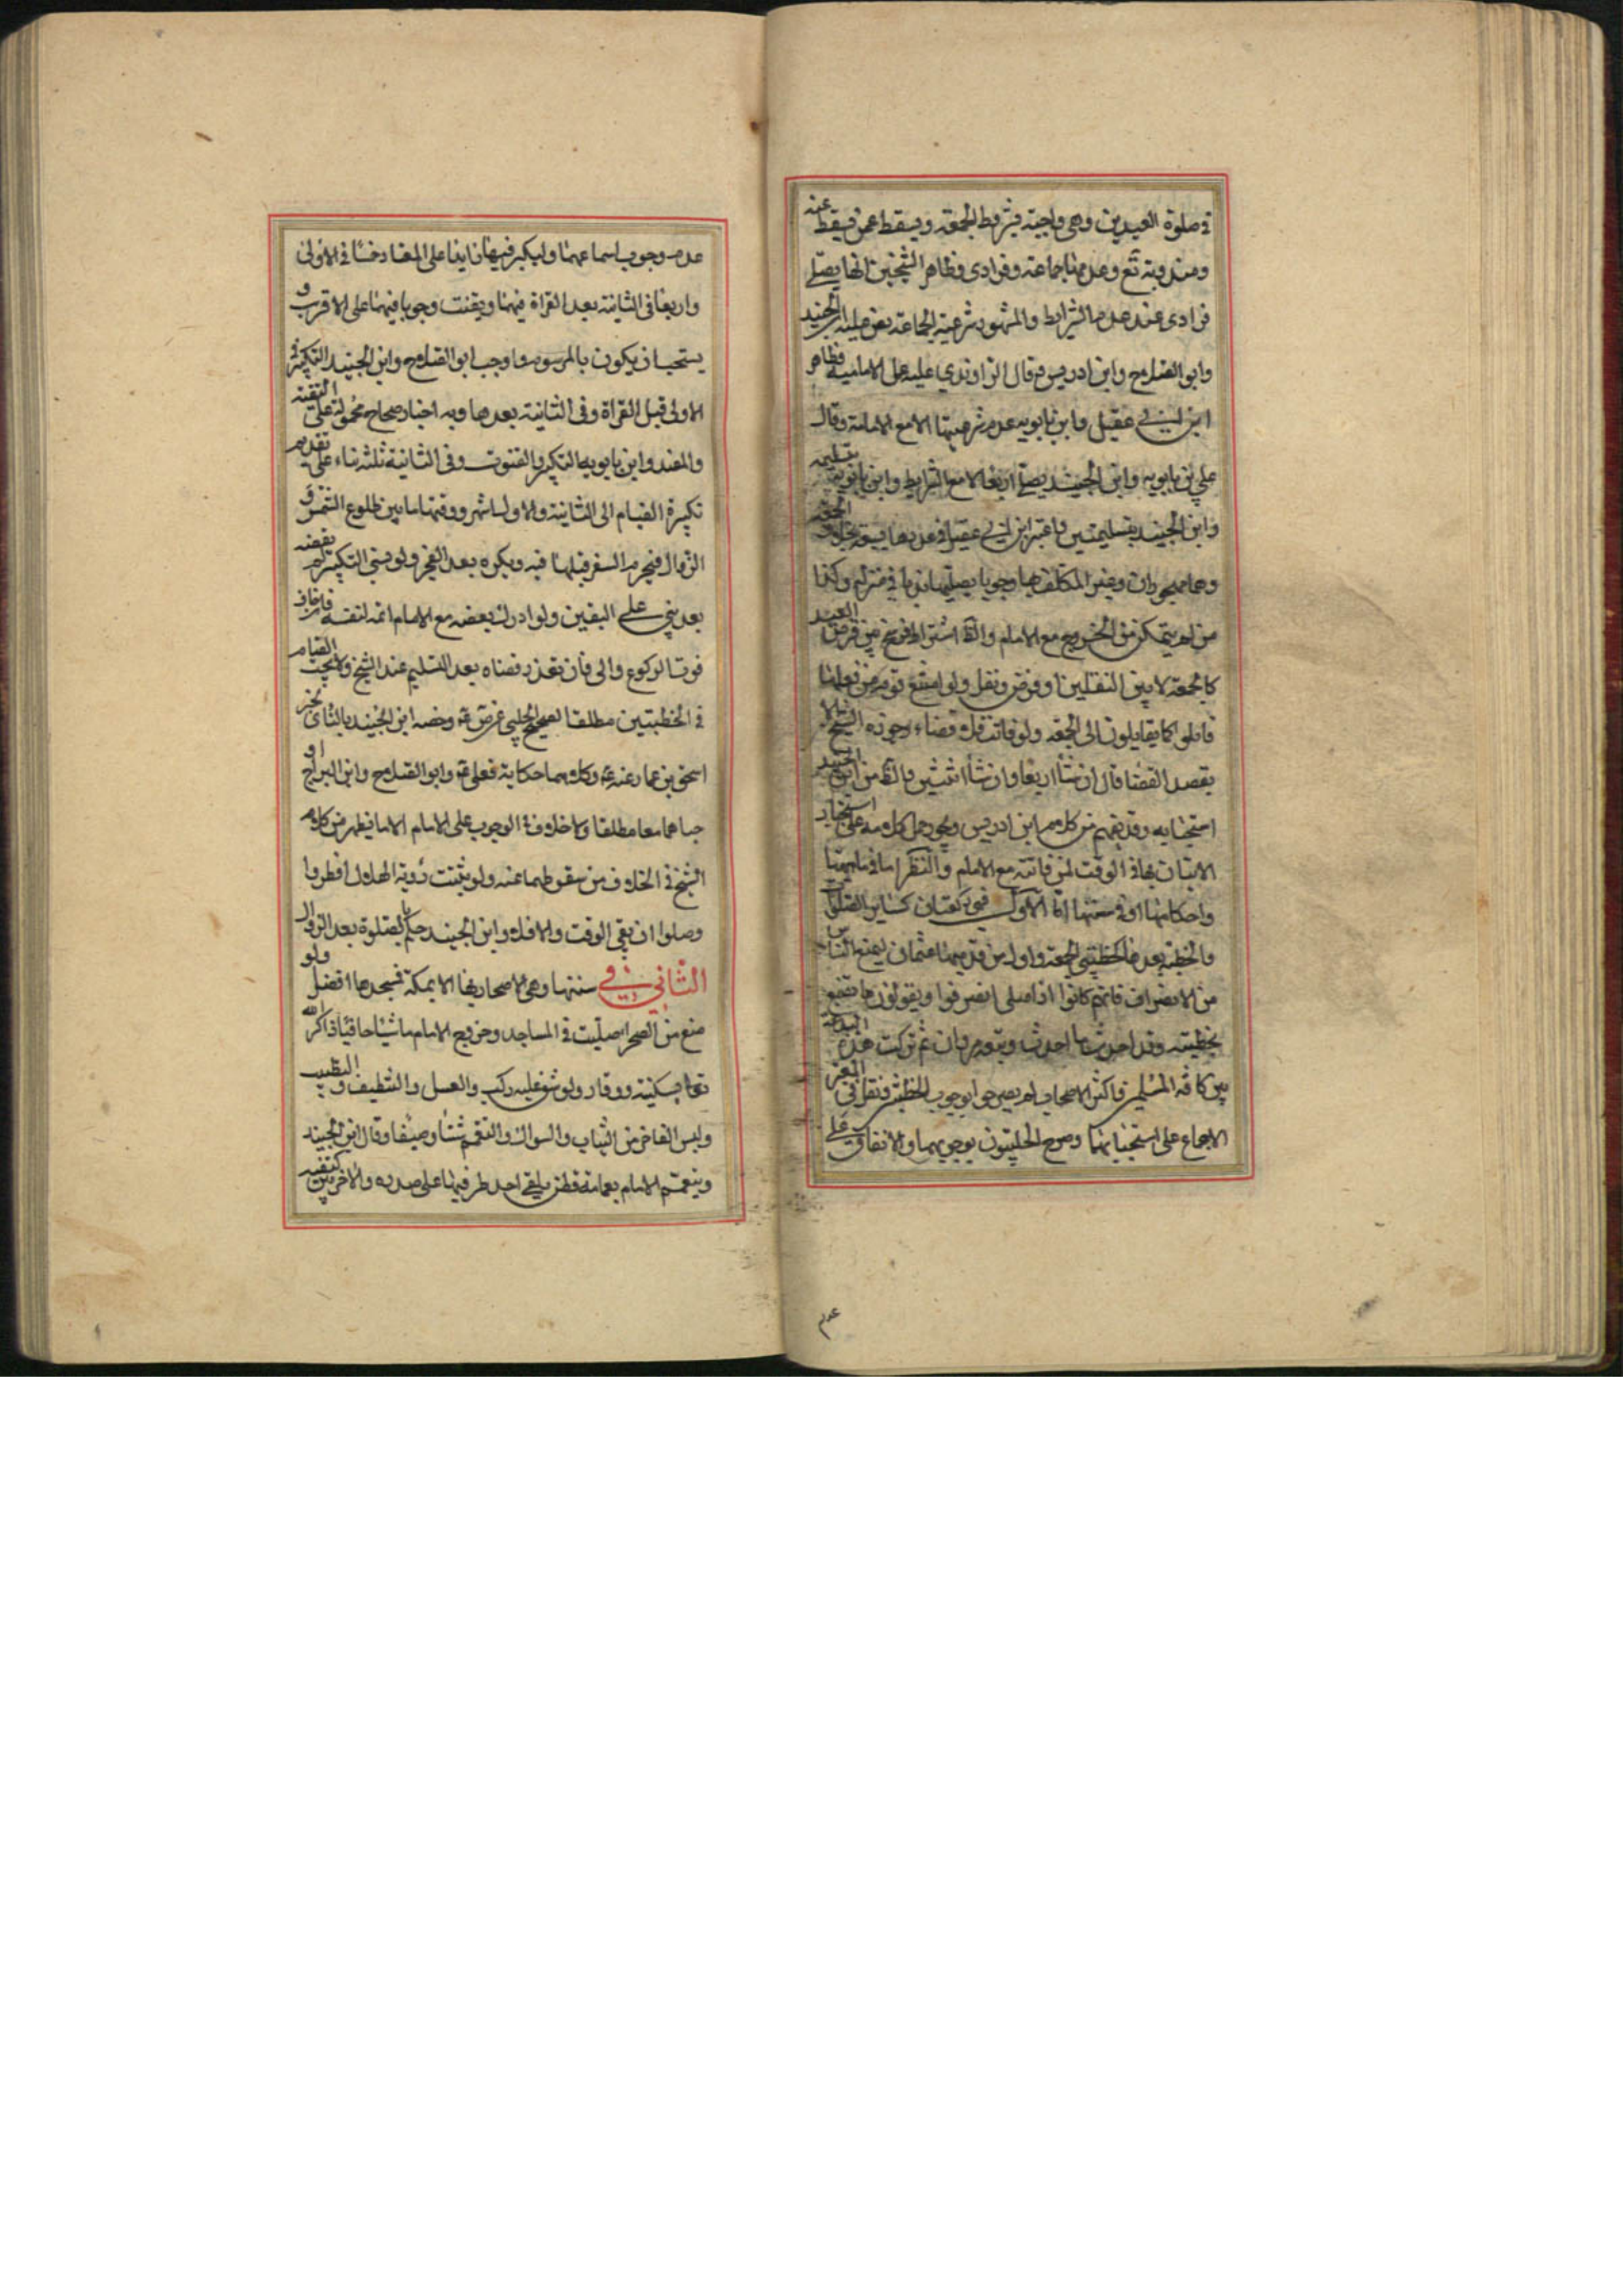 في صلوة العيدين وهي واجبة بشروط الجمعة ويسقط عمن يسقط عنه
ومندوبة تقع وعدمها جماعة وفرادى وظاهر الشيخين انها يصلى
فرادى عند عدم الشرايط والمشهور شرعية الجماعة نص عليه ابن الجنيد
وابو الصلاح وابن ادريس قال الراوندي عليه عمل الامامية وظاهر
ابن ابي عقيل وابن بابويه عدم شرعيتها الا مع الامامة وقال
علي بن بابويه وابن الجنيد يصلى اربعا لا مع الشرايط وابن بابويه بتسليمة
وابن الجنيد بتسليمتين واعتبر ابن ابي عقيل في عددها سبعة بخلاف الجمعة
وهما محجوجان وغير المكلف بها وجوبا يصليها ندبا في منزله وكذا
من لم يتمكن من الخروج مع الامام اشتراط فرسخ بين فرضي العيد
كالجمعة لا بين النفلين او فرض ونفل ولو امتنع قوم من فعلها
قوتلوا كما يقاتلون الى الجمعة ولو فاتت فلا قضاء وجوزه الشيخ لا
بقصد القضاء قال ان شاء اربعا وان شاء اثنتين من ابن الجنيد
استحبابه وقد يفهم من كلام ابن ادريس ويجوز حمل كلامه على استحباب
الاتيان بها في الوقت لمن فاتته مع الامام والنظر اما في ماهيتها
واحكامها او في سننها اما الاول فهي ركعتان كساير الصلوات
والخطبة بعدها كخطبتي الجمعة واول من قدمهما عثمان ليمنع الناس
من الانصراف فانهم كانوا اذا صلى انصرفوا ويقولون ما نصنع
بخطبته وقد احدث ما احدث ثم تركت هذه البدعة
بين كافة المسلمين فاكثر الاصحاب لم يصرحوا بوجوب الخطبتين ونقل في المعتبر
الاجماع على استحبابهما وصرح الحليون بوجوبهما والاتفاق على
عدم
عدم وجوب استماعهما وليكبر فيها زايدا على المعتاد خمسا في الاولى
واربعا في الثانية بعد القراة فيهما ويقنت وجوبا فيهما على الاقرب و
يستحب ان يكون بالمرسوم واوجب ابو الصلاح وابن الجنيد التكبير في
الاولى قبل القراة وفي الثانية بعدها وبه اخبار صحاح محمولة على التقية
والمفيد وابن بابويه التكبير والقنوت وفي الثانية ثلثة بناء على تقديم
تكبيرة القيام الى الثانية والاول اشهر ووقتها ما بين طلوع الشمس و
الزوال فيحرم السفر قبلها فيه ويكره بعد الفجر ولو نسي التكبير او بعضه
بعد بنى على اليقين ولو ادرك بعضه مع الامام اتمه لنفسه فان خاف
فوت الركوع والى فان تعذر قضاه بعد التسليم عند الشيخ ولا يجب القيام
في الخطبتين مطلقا لصحيح الحلبي عن ص ع وخصه ابن الجنيد بالثاني لخبر
اسحق بن عمار عنه ع وكلاهما حكاية فعل علي ع وابو الصلاح وابن البراج او
جباهما معا مطلقا ولا خلاف في الوجوب على الامام الا ما يظهر من كلام
الشيخ في الخلاف من سقوطهما عنه ولو ثبتت رؤية الهلال افطروا
وصلوا ان بقي الوقت والا فلا وابن الجنيد حكم بالصلوة بعد الزوال
الثاني في سننها وهي الاصحار بها الا بمكة فمسجدها افضل ولو
منع من الصحراء صليت في المساجد وخروج الامام ماشيا حافيا ذاكرا لله
تعالى بسكينة ووقار ولو شق عليه ركب والغسل والتنظيف والتطيب
ولبس الفاخر من الثياب والسواك والتعمم شتاء وصيفا وقال ابن الجنيد
ويتعمم الامام بعمامة قطن يلقي احد طرفيها على صدره والاخر بين كتفيه